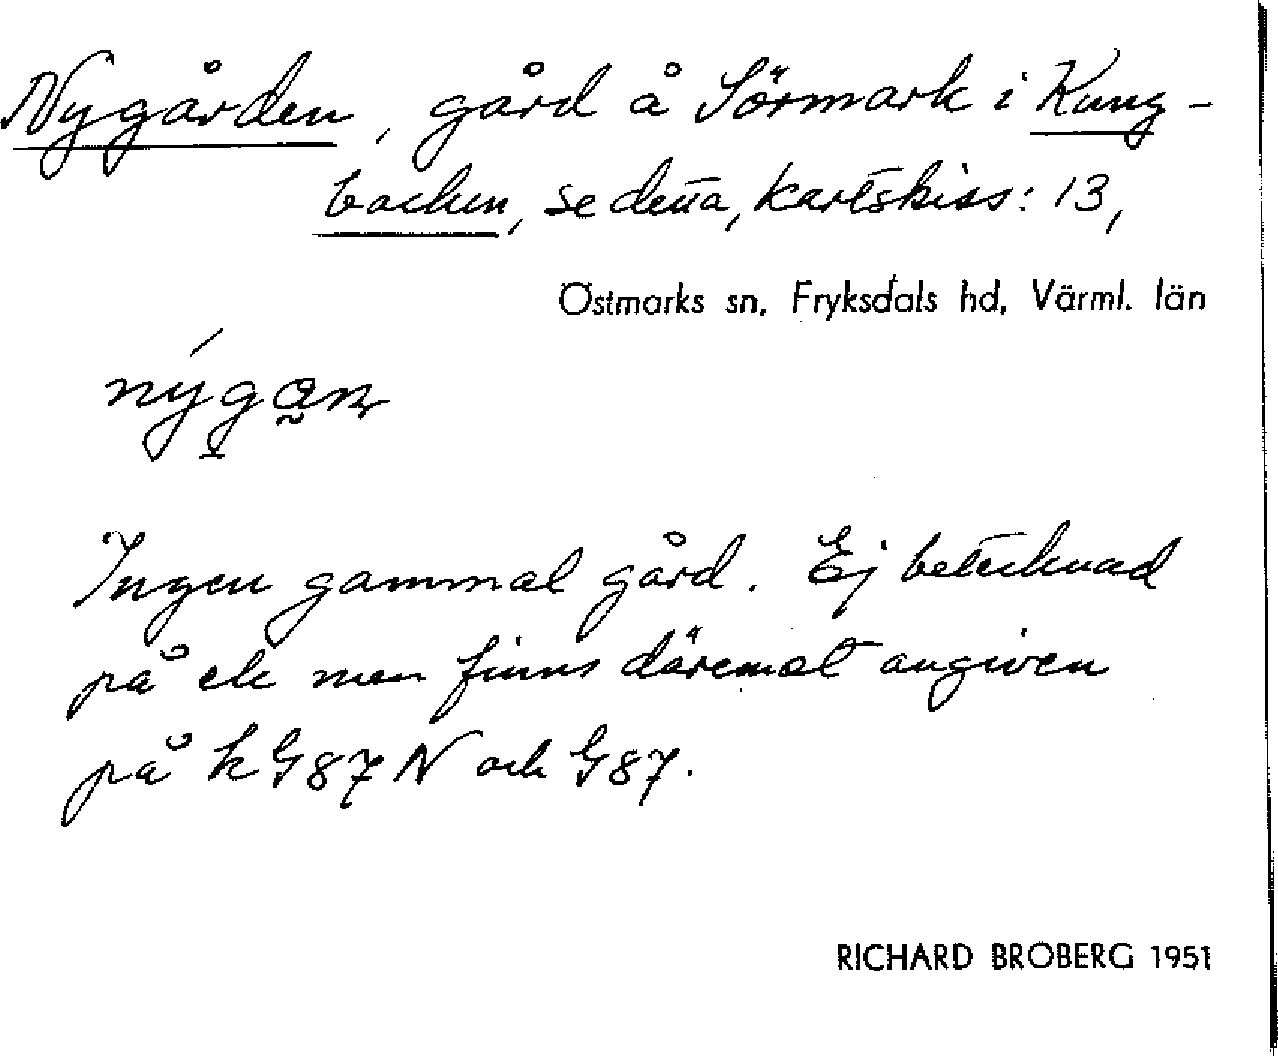 Nygården, gård å Sörmark i Kung-
backen, se detta, kartskiss: 13,
Östmarks sn, Fryksdals hd, Värml. län
Ingen gammal gård. Ej betecknad
på ek men finns däremot angiven
på k G87 N och G87.
RICHARD BROBERG 1951